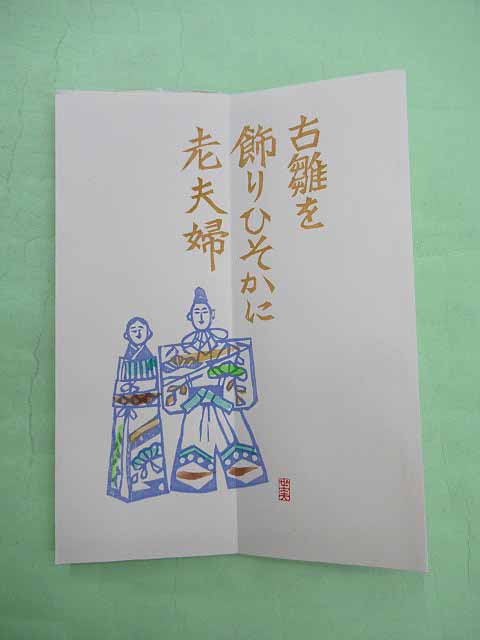 古雛を
飾りひそかに
老夫婦